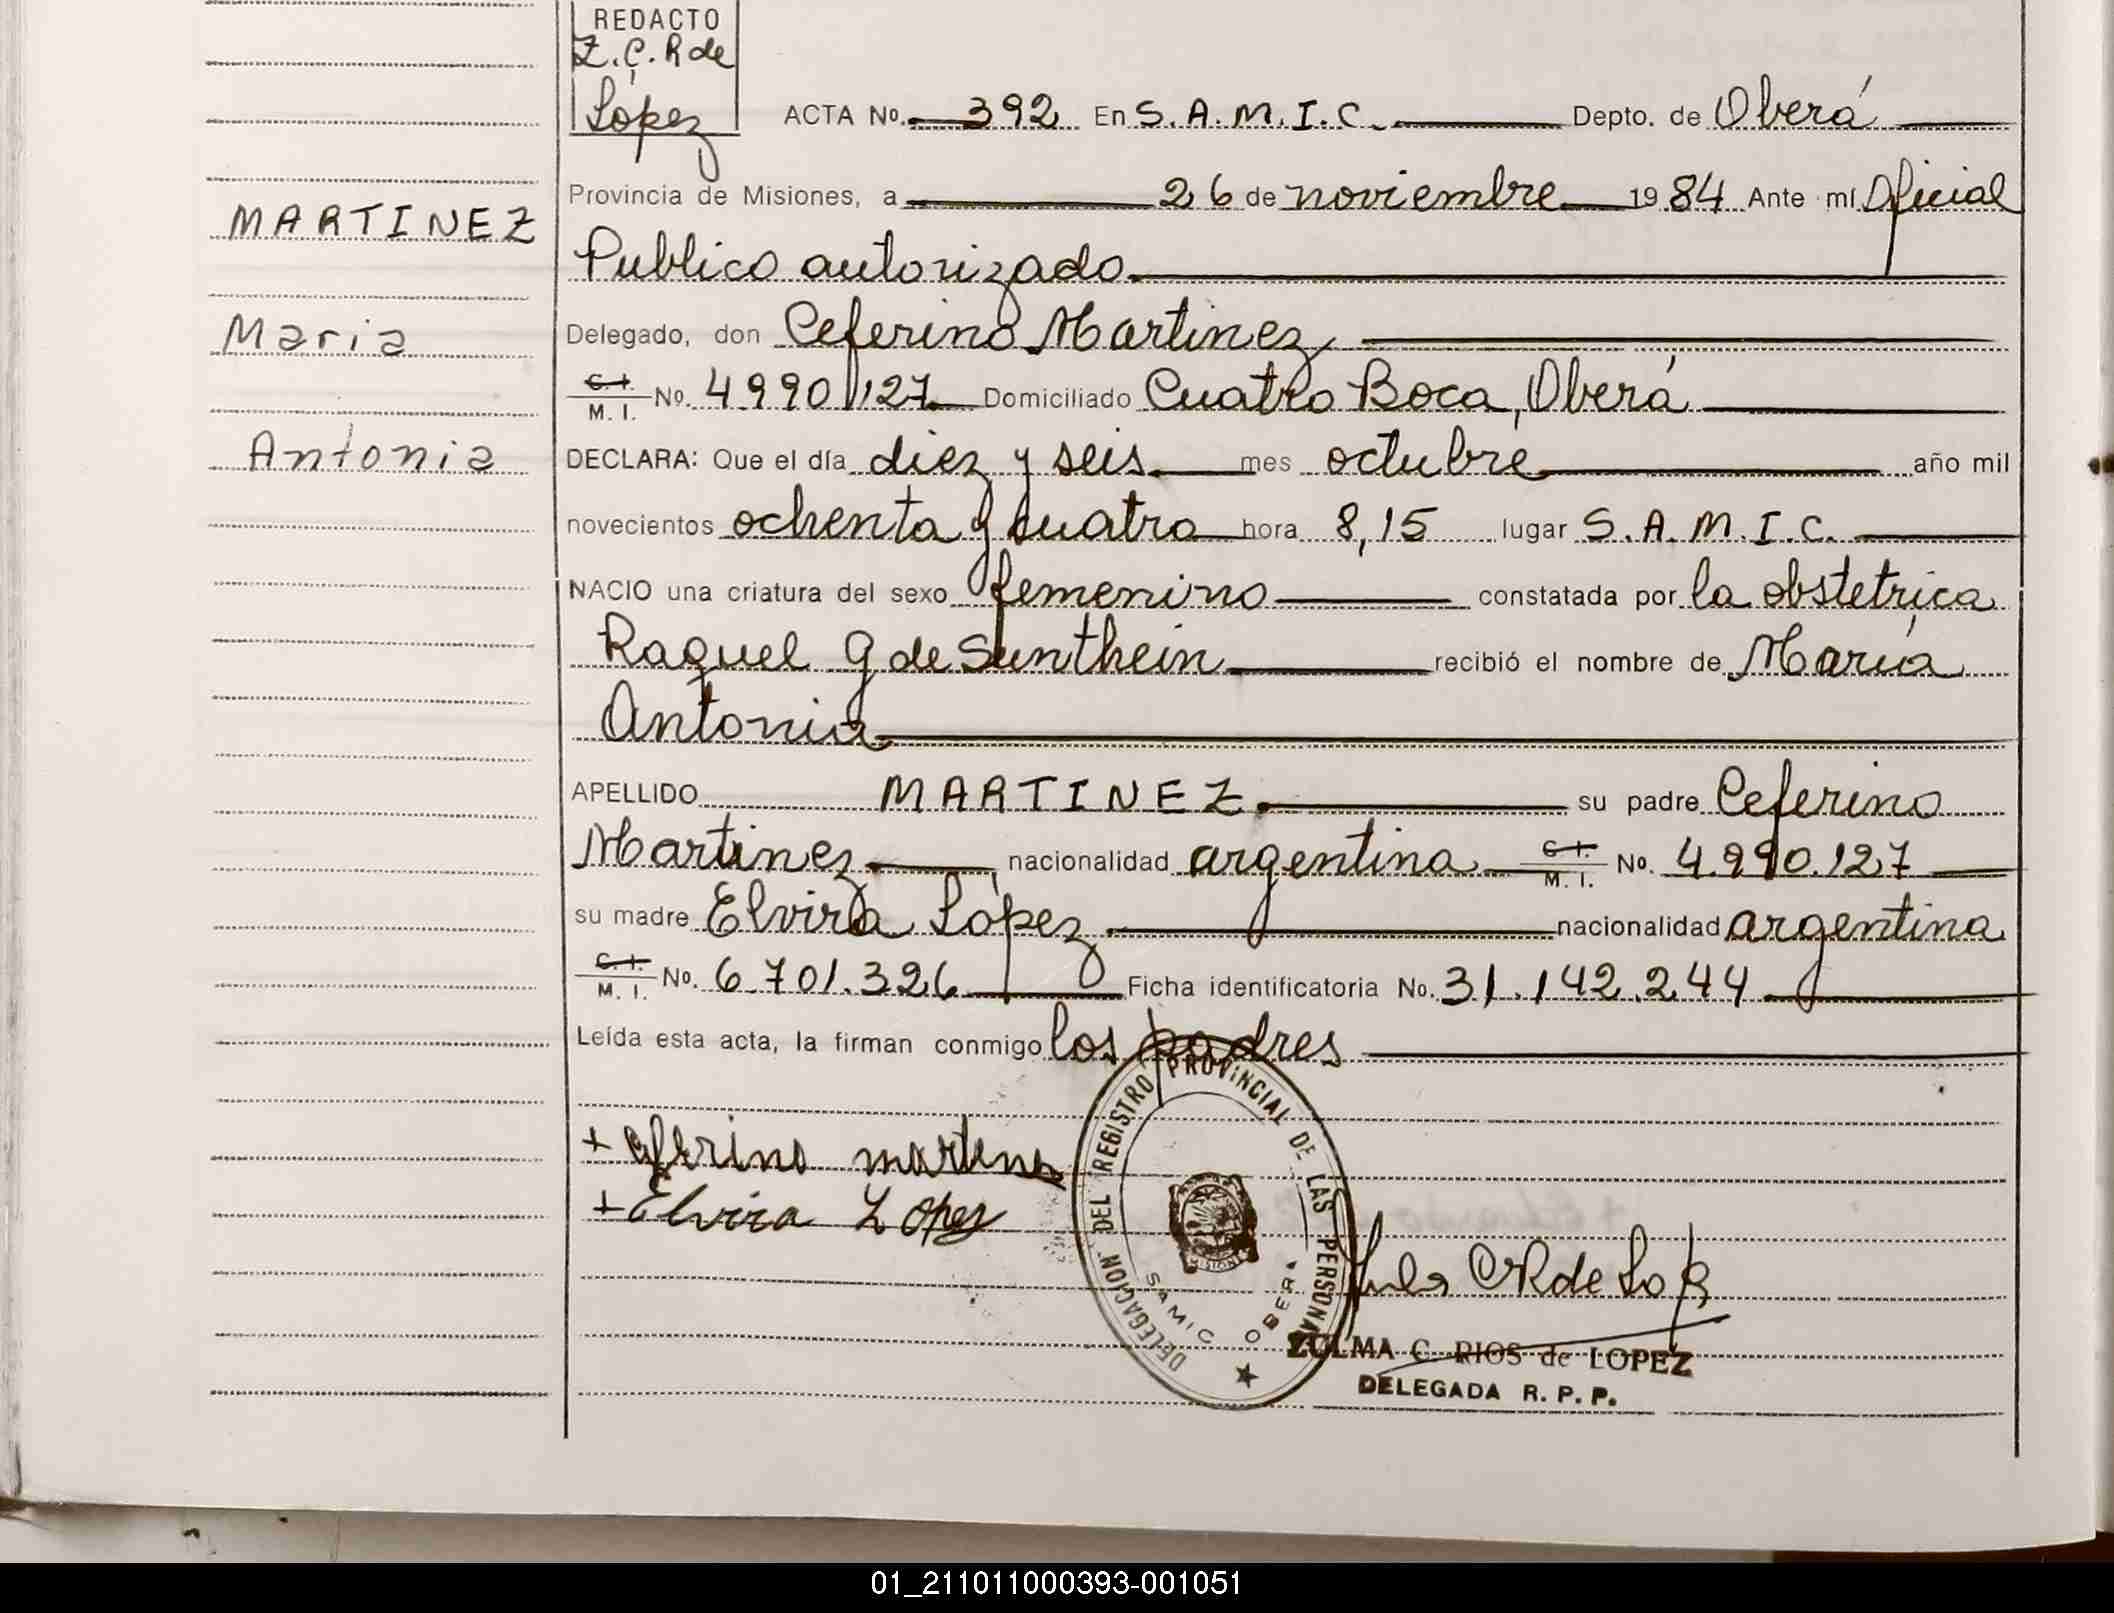 REDACTO
Z. C. R de
López
ACTA No. 392 En S. A. M. I. C. Depto. de Oberá
Provincia de Misiones, a 26 de noviembre 1984 Ante mí Oficial
Publico autorizado
Delegado, don Ceferino Martinez
C. I. M. I. No. 4.990.127 Domiciliado Cuatro Boca, Oberá
DECLARA: Que el día diez y seis mes octubre año mil
novecientos ochenta y cuatro hora 8,15 lugar S. A. M. I. C.
NACIO una criatura del sexo femenino constatada por la obstetrica
Raquel G de Sunthein recibió el nombre de María
Antonia
APELLIDO MARTINEZ su padre Ceferino
Martinez nacionalidad argentina C. I. M. I. No. 4.990.127
su madre Elvira López nacionalidad argentina
C. I. M. I. No. 6.701.326 Ficha identificatoria No. 31.142.244
Leída esta acta, la firman conmigo los padres
MARTINEZ
Maria
Antonia
+ Ceferino martines
+ Elvira Lopez
DELEGACION DEL REGISTRO PROVINCIAL DE LAS PERSONAS
SAMIC OBERA
MISIONES
C R de Lopez
ZULMA C. RIOS de LOPEZ
DELEGADA R. P. P.
01_211011000393-001051